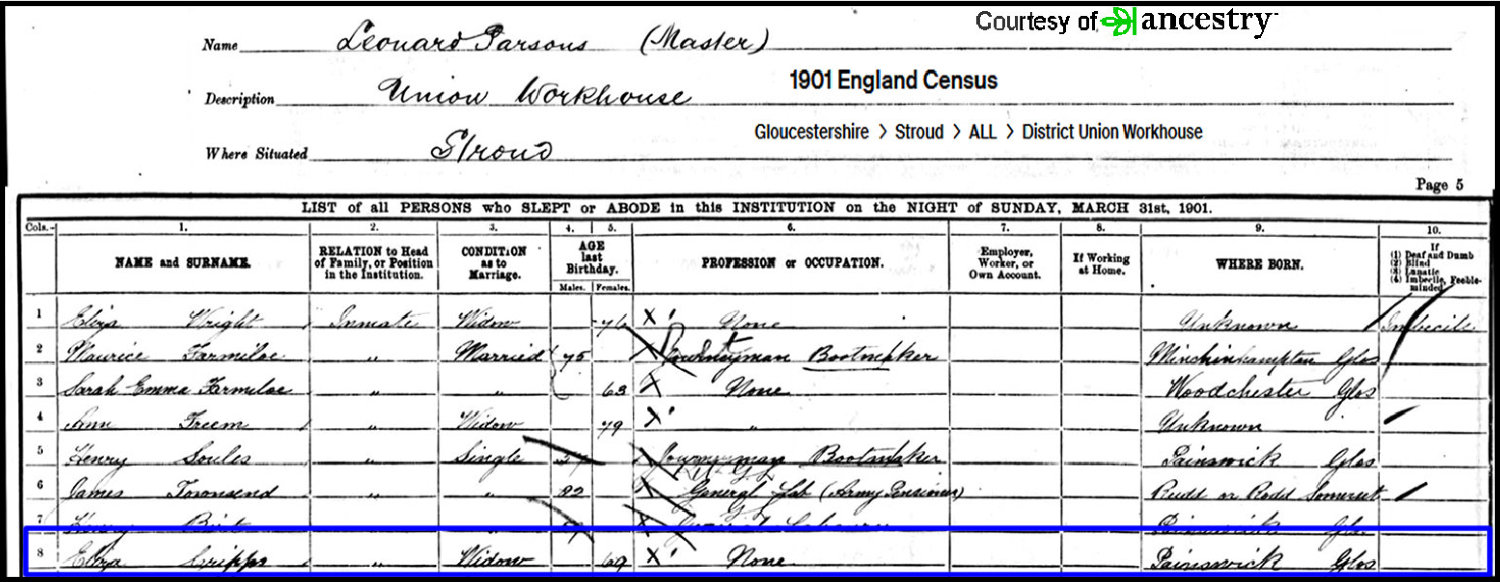 Courtesy of ancestry
Name Leonard Parsons (Master)
1901 England Census
Description Union Workhouse
Gloucestershire > Stroud > ALL > District Union Workhouse
Where Situated Stroud
Page 5
LIST of all PERSONS who SLEPT or ABODE in this INSTITUTION on the NIGHT of SUNDAY, MARCH 31st, 1901.
Cols.- 1. 2. 3. 4. 5. 6. 7. 8. 9. 10.
NAME and SURNAME. RELATION to Head of Family, or Position in the Institution. CONDITION as to Marriage. AGE last Birthday. Males. Females. PROFESSION or OCCUPATION. Employer, Worker, or Own Account. If Working at Home. WHERE BORN. If (1) Deaf and Dumb (2) Blind (3) Lunatic (4) Imbecile, Feeble-minded
1 Eliza Wright Inmate Widow X None Unknown Imbecile
2 Maurice Farmiloe " Married 75 X Journeyman Bootmaker Minchinhampton Glos
3 Sarah Emma Farmiloe " " 63 X None Woodchester Glos
4 Ann Freem " Widow 79 X " Unknown
5 Henry Soules " Single X Journeyman Bootmaker Painswick Glos
6 James Townsend " " X General Lab (Army Pensioner) Rudd or Rodd Somerset
7 Henry X General
8 Eliza Cripps Widow 69 X None Painswick Glos